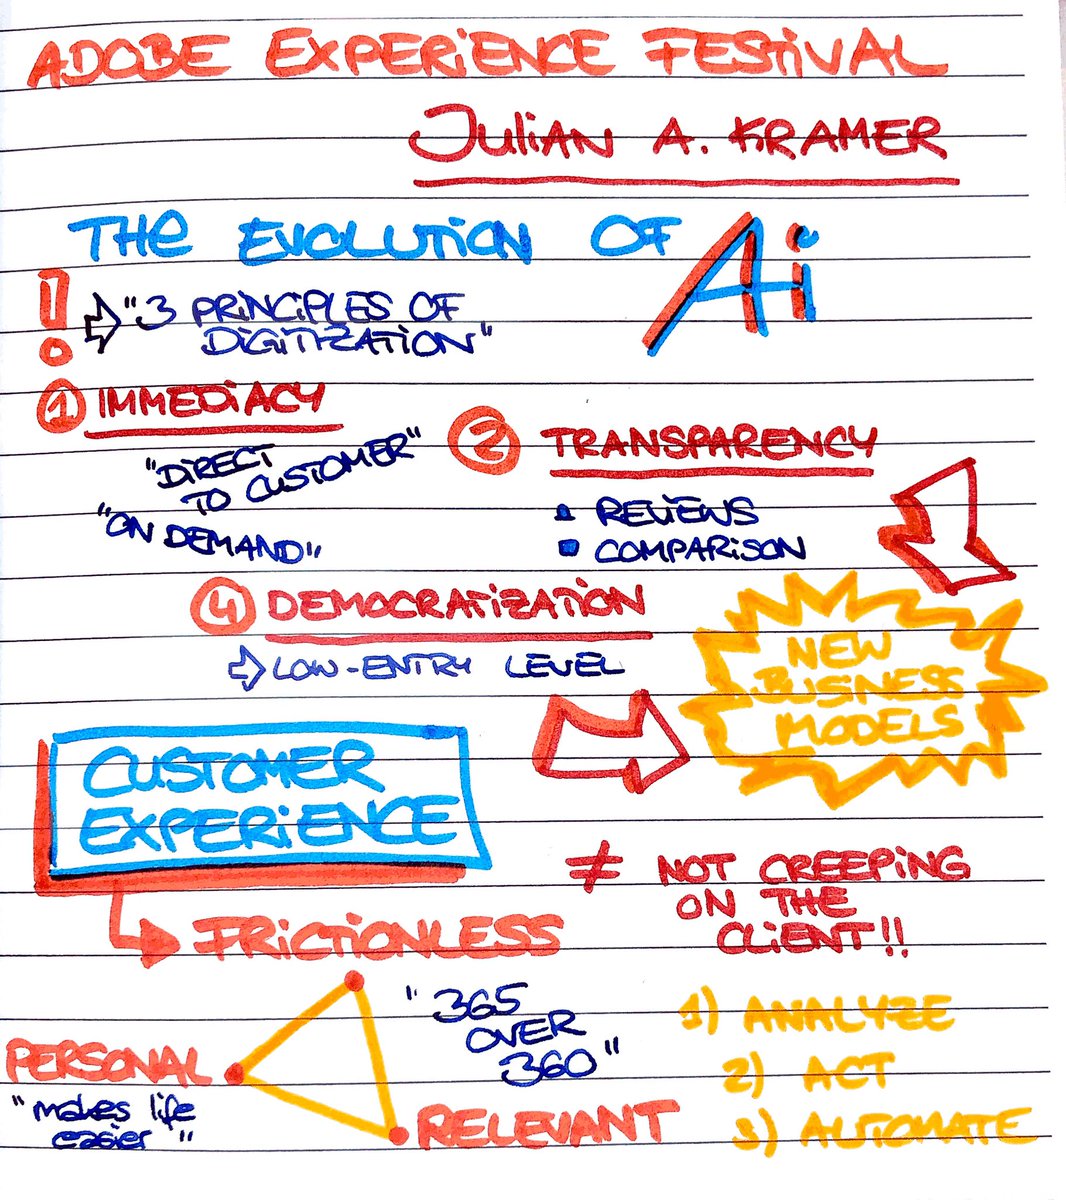 ADOBE EXPERIENCE FESTIVAL
JULIAN A. KRAMER
THE EVOLUTION OF Ai
! "3 PRINCIPLES OF
DIGITIZATION"
1 IMMEDIACY
"DIRECT
TO CUSTOMER"
"ON DEMAND"
2 TRANSPARENCY
REVIEWS
COMPARISON
4 DEMOCRATIZATION
LOW-ENTRY LEVEL
NEW
BUSINESS
MODELS
CUSTOMER
EXPERIENCE
≠ NOT CREEPING
ON THE
CLIENT!!
FRICTIONLESS
PERSONAL
"makes life
easier"
"365
OVER
360"
RELEVANT
1) ANALYZE
2) ACT
3) AUTOMATE